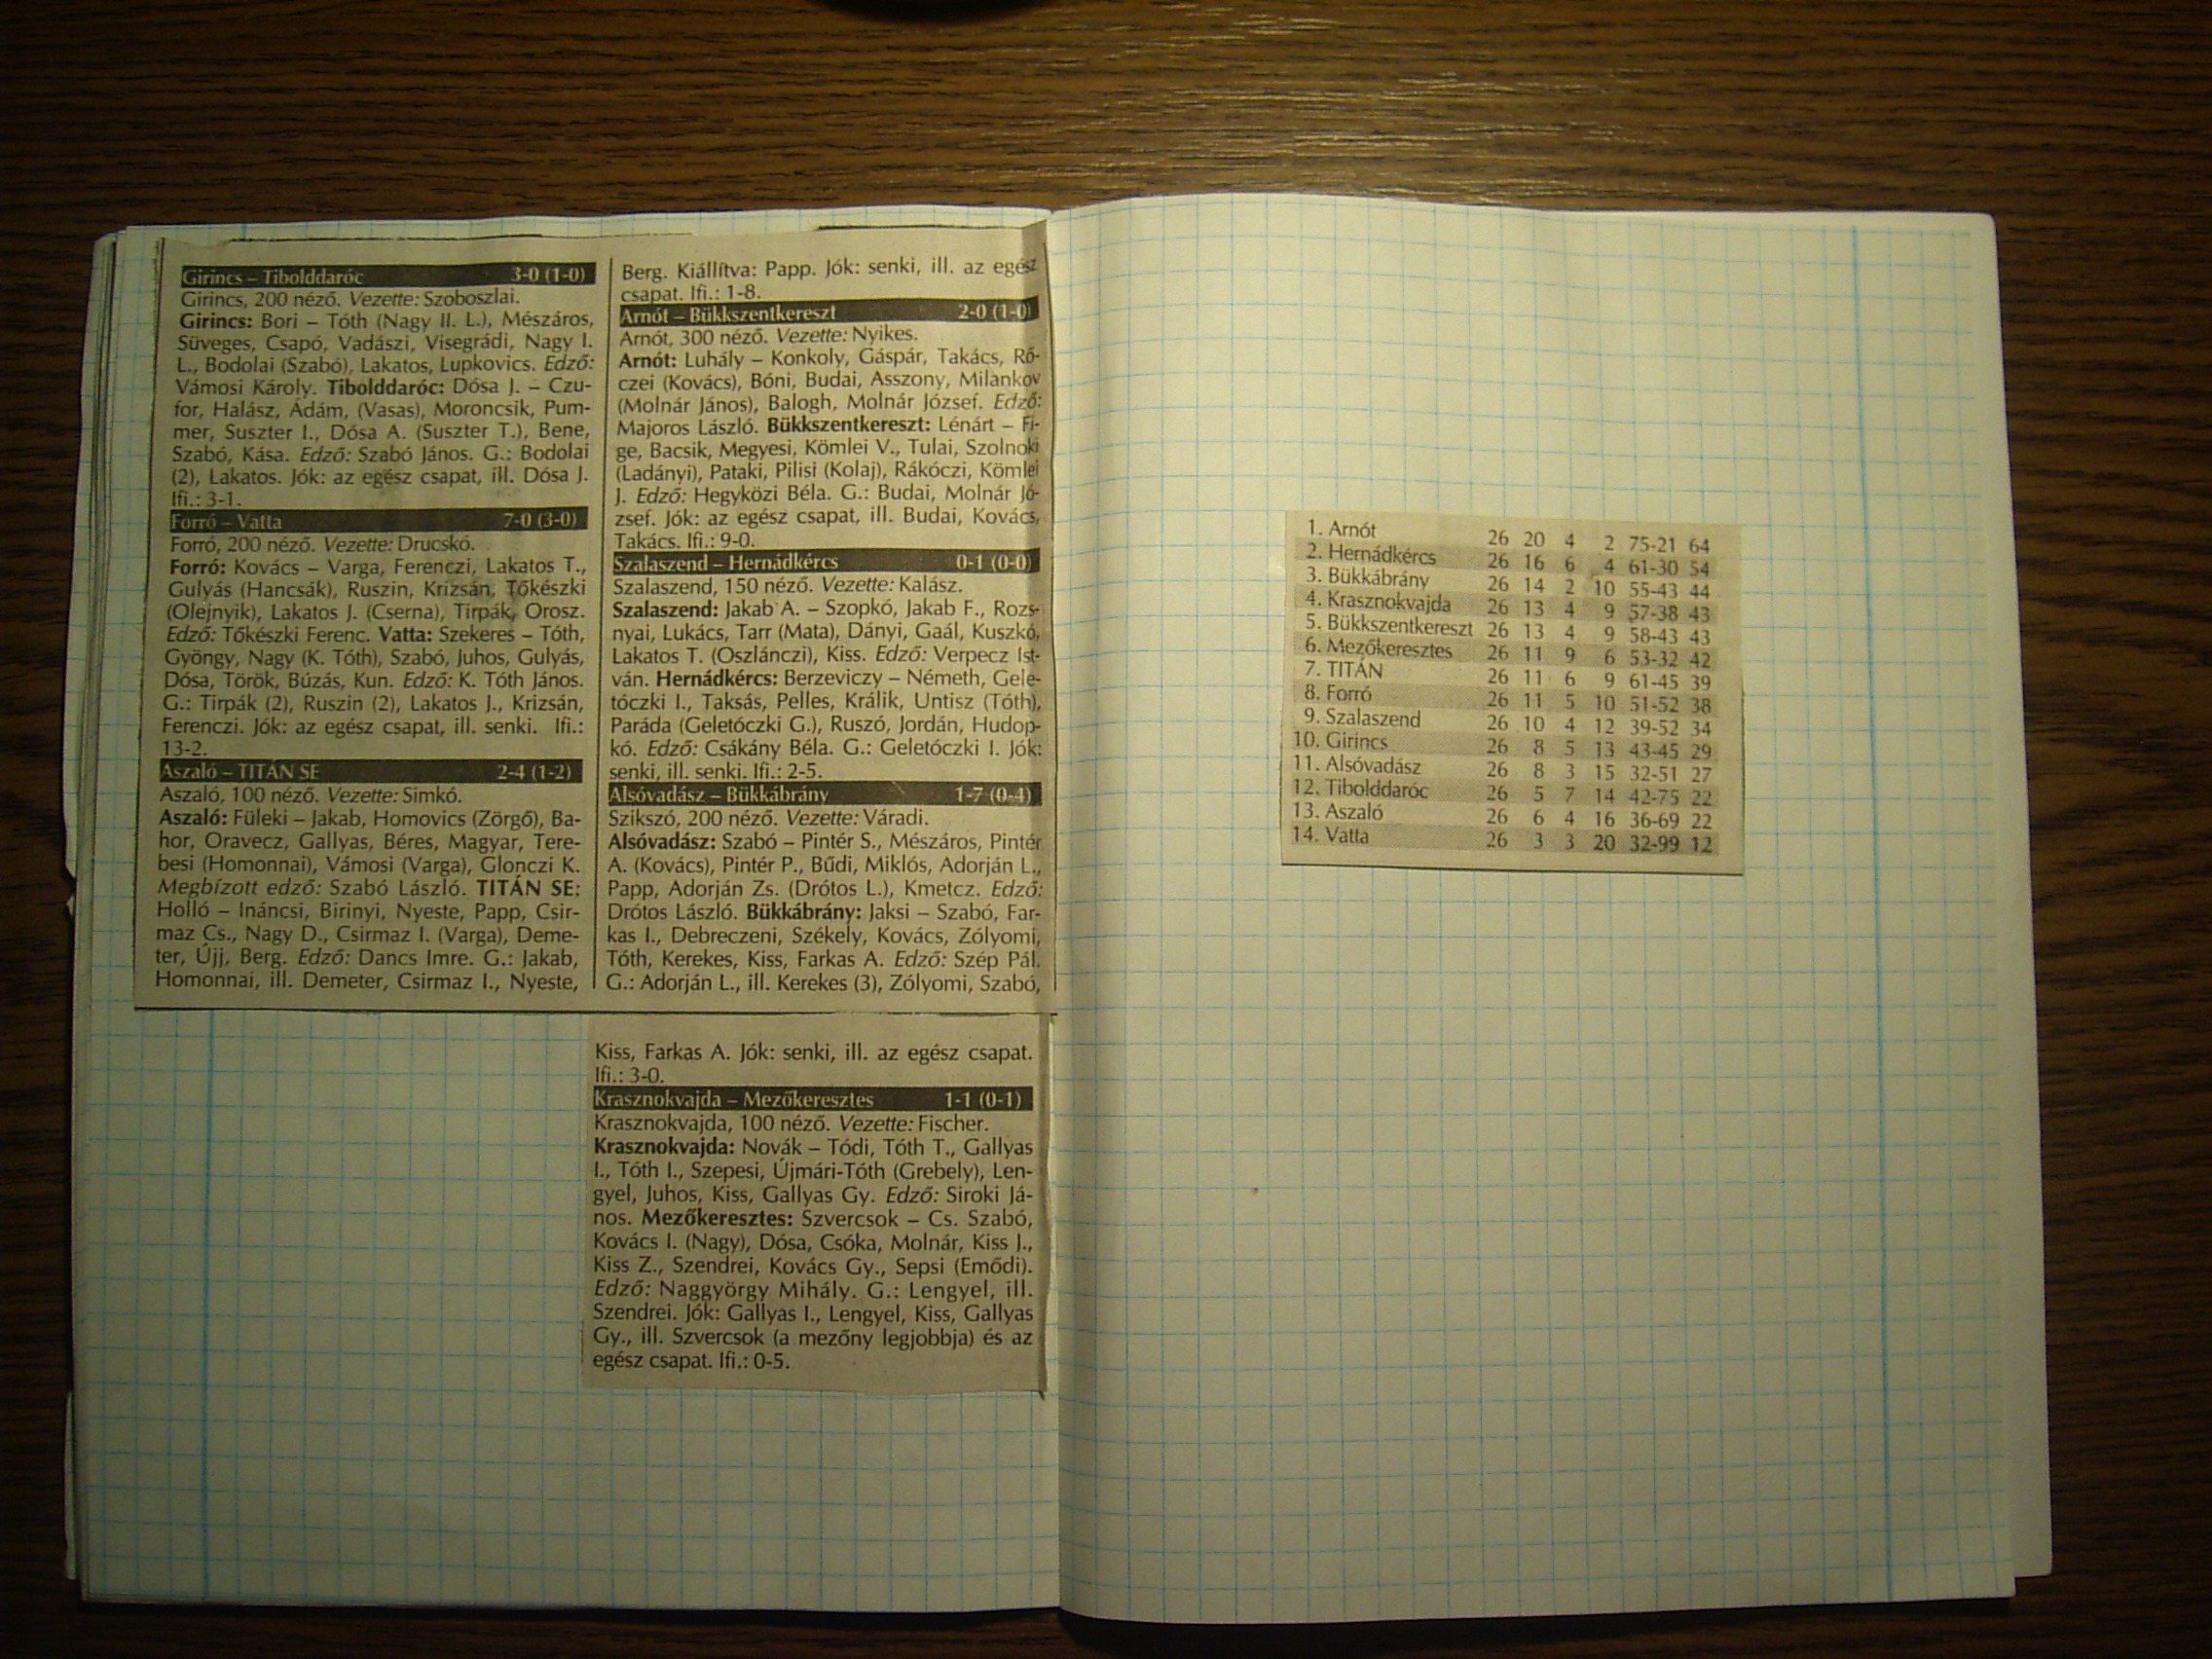 Girincs – Tibolddaróc 3-0 (1-0)
Girincs, 200 néző. Vezette: Szoboszlai.
Girincs: Bori – Tóth (Nagy II. L.), Mészáros,
Süveges, Csapó, Vadászi, Visegrádi, Nagy I.
L., Bodolai (Szabó), Lakatos, Lupkovics. Edző:
Vámosi Károly. Tibolddaróc: Dósa J. – Czu-
for, Halász, Ádám, (Vasas), Moroncsik, Pum-
mer, Suszter I., Dósa A. (Suszter T.), Bene,
Szabó, Kása. Edző: Szabó János. G.: Bodolai
(2), Lakatos. Jók: az egész csapat, ill. Dósa J.
Ifi.: 3-1.
Forró – Vatta 7-0 (3-0)
Forró, 200 néző. Vezette: Drucskó.
Forró: Kovács – Varga, Ferenczi, Lakatos T.,
Gulyás (Hancsák), Ruszin, Krizsán, Tőkészki
(Olejnyik), Lakatos J. (Cserna), Tirpák, Orosz.
Edző: Tőkészki Ferenc. Vatta: Szekeres – Tóth,
Gyöngy, Nagy (K. Tóth), Szabó, Juhos, Gulyás,
Dósa, Török, Búzás, Kun. Edző: K. Tóth János.
G.: Tirpák (2), Ruszin (2), Lakatos J., Krizsán,
Ferenczi. Jók: az egész csapat, ill. senki. Ifi.:
13-2.
Aszaló – TITÁN SE 2-4 (1-2)
Aszaló, 100 néző. Vezette: Simkó.
Aszaló: Füleki – Jakab, Homovics (Zörgő), Ba-
hor, Oravecz, Gallyas, Béres, Magyar, Tere-
besi (Homonnai), Vámosi (Varga), Glonczi K.
Megbízott edző: Szabó László. TITÁN SE:
Holló – Ináncsi, Birinyi, Nyeste, Papp, Csir-
maz Cs., Nagy D., Csirmaz I. (Varga), Deme-
ter, Újj, Berg. Edző: Dancs Imre. G.: Jakab,
Homonnai, ill. Demeter, Csirmaz I., Nyeste,
Berg. Kiállítva: Papp. Jók: senki, ill. az egész
csapat. Ifi.: 1-8.
Arnót – Bükkszentkereszt 2-0 (1-0)
Arnót, 300 néző. Vezette: Nyikes.
Arnót: Luhály – Konkoly, Gáspár, Takács, Rő-
czei (Kovács), Bóni, Budai, Asszony, Milankov
(Molnár János), Balogh, Molnár József. Edző:
Majoros László. Bükkszentkereszt: Lénárt – Fi-
ge, Bacsik, Megyesi, Kömlei V., Tulai, Szolnoki
(Ladányi), Pataki, Pilisi (Kolaj), Rákóczi, Kömlei
J. Edző: Hegyközi Béla. G.: Budai, Molnár Jó-
zsef. Jók: az egész csapat, ill. Budai, Kovács,
Takács. Ifi.: 9-0.
Szalaszend – Hernádkércs 0-1 (0-0)
Szalaszend, 150 néző. Vezette: Kalász.
Szalaszend: Jakab A. – Szopkó, Jakab F., Rozs-
nyai, Lukács, Tarr (Mata), Dányi, Gaál, Kuszkó,
Lakatos T. (Oszlánczi), Kiss. Edző: Verpecz Ist-
ván. Hernádkércs: Berzeviczy – Németh, Gele-
tóczki I., Taksás, Pelles, Králik, Untisz (Tóth),
Paráda (Geletóczki G.), Ruszó, Jordán, Hudop-
kó. Edző: Csákány Béla. G.: Geletóczki I. Jók:
senki, ill. senki. Ifi.: 2-5.
Alsóvadász – Bükkábrány 1-7 (0-4)
Szikszó, 200 néző. Vezette: Váradi.
Alsóvadász: Szabó – Pintér S., Mészáros, Pintér
A. (Kovács), Pintér P., Bűdi, Miklós, Adorján L.,
Papp, Adorján Zs. (Drótos L.), Kmetcz. Edző:
Drótos László. Bükkábrány: Jaksi – Szabó, Far-
kas I., Debreczeni, Székely, Kovács, Zólyomi,
Tóth, Kerekes, Kiss, Farkas A. Edző: Szép Pál.
G.: Adorján L., ill. Kerekes (3), Zólyomi, Szabó,
Kiss, Farkas A. Jók: senki, ill. az egész csapat.
Ifi.: 3-0.
Krasznokvajda – Mezőkeresztes 1-1 (0-1)
Krasznokvajda, 100 néző. Vezette: Fischer.
Krasznokvajda: Novák – Tódi, Tóth T., Gallyas
I., Tóth I., Szepesi, Újmári-Tóth (Grebely), Len-
gyel, Juhos, Kiss, Gallyas Gy. Edző: Siroki Já-
nos. Mezőkeresztes: Szvercsok – Cs. Szabó,
Kovács I. (Nagy), Dósa, Csóka, Molnár, Kiss J.,
Kiss Z., Szendrei, Kovács Gy., Sepsi (Emődi).
Edző: Naggyörgy Mihály. G.: Lengyel, ill.
Szendrei. Jók: Gallyas I., Lengyel, Kiss, Gallyas
Gy., ill. Szvercsok (a mezőny legjobbja) és az
egész csapat. Ifi.: 0-5.
1. Arnót 26 20 4 2 75-21 64
2. Hernádkércs 26 16 6 4 61-30 54
3. Bükkábrány 26 14 2 10 55-43 44
4. Krasznokvajda 26 13 4 9 57-38 43
5. Bükkszentkereszt 26 13 4 9 58-43 43
6. Mezőkeresztes 26 11 9 6 53-32 42
7. TITÁN 26 11 6 9 61-45 39
8. Forró 26 11 5 10 51-52 38
9. Szalaszend 26 10 4 12 39-52 34
10. Girincs 26 8 5 13 43-45 29
11. Alsóvadász 26 8 3 15 32-51 27
12. Tibolddaróc 26 5 7 14 42-75 22
13. Aszaló 26 6 4 16 36-69 22
14. Vatta 26 3 3 20 32-99 12